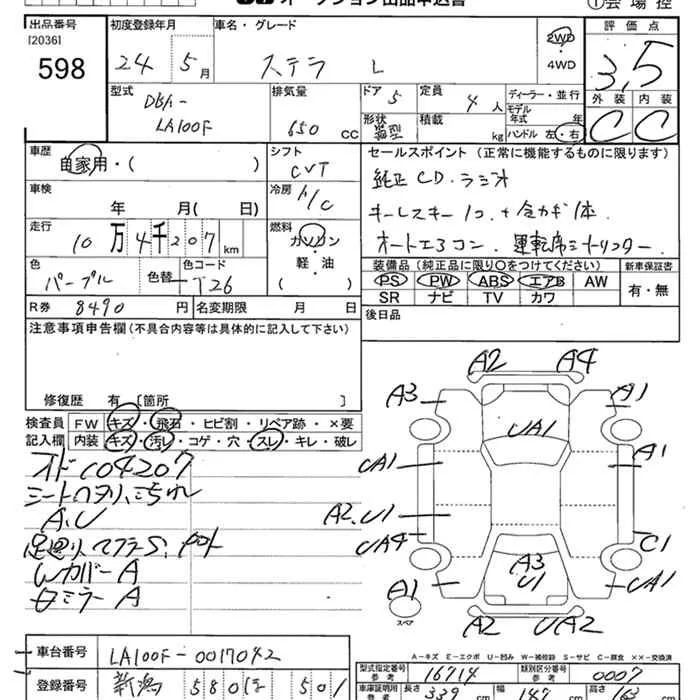 オークション出品申込書
①会場控
出品番号 初度登録年月 車名・グレード 評価点
[2036]
598 24年 5月 ステラ L 2WD・4WD 3.5
型式 DBA-LA100F 排気量 650cc ドア 5 定員 4人 ディーラー・並行
モデル年式 年
形状 箱型 積載 kg ハンドル 左・右
外装 内装
C C
車歴 自家用・( ) シフト CVT セールスポイント (正常に機能するものに限ります)
純正CD・ラジオ
車検 年 月( 日) 冷房 A/C
キーレスキー1コ+合カギ1体
走行 10万4千207km 燃料 ガソリン・軽油
オートエアコン、運転席シートリフター
色 パープル 色替 色コード T26 ( )
装備品 (純正品に限り○をつけてください) 新車保証書
PS PW ABS エアB AW 有・無
SR ナビ TV カワ
R券 8490円 名変期限 月 日
後日品
注意事項申告欄(不具合内容等は具体的に記入して下さい)
修復歴 有 [箇所 ]
検査員記入欄 FW キズ・飛石・ヒビ割・リペア跡・×要
内装 キズ・汚レ・コゲ・穴・スレ・キレ・破レ
オド104207
シートヘタリ、汚れ
A、U
足廻り、マフラーS
WカバーA
ミラーA
A2 A4
A3 A1
UA1
UA1 A1
A2、U1
UA4 C1
A3
U1
A1 UA1
スペア
A2 UA2
A-キズ E-エクボ U-凹み W-補修跡 S-サビ C-腐食 ××-交換済
車台番号 LA100F-0017042
登録番号 新潟 580 501
型式指定番号 参考 16714 類別区分番号 参考 0007
車庫証明用 参考 長さ 339cm 幅 147cm